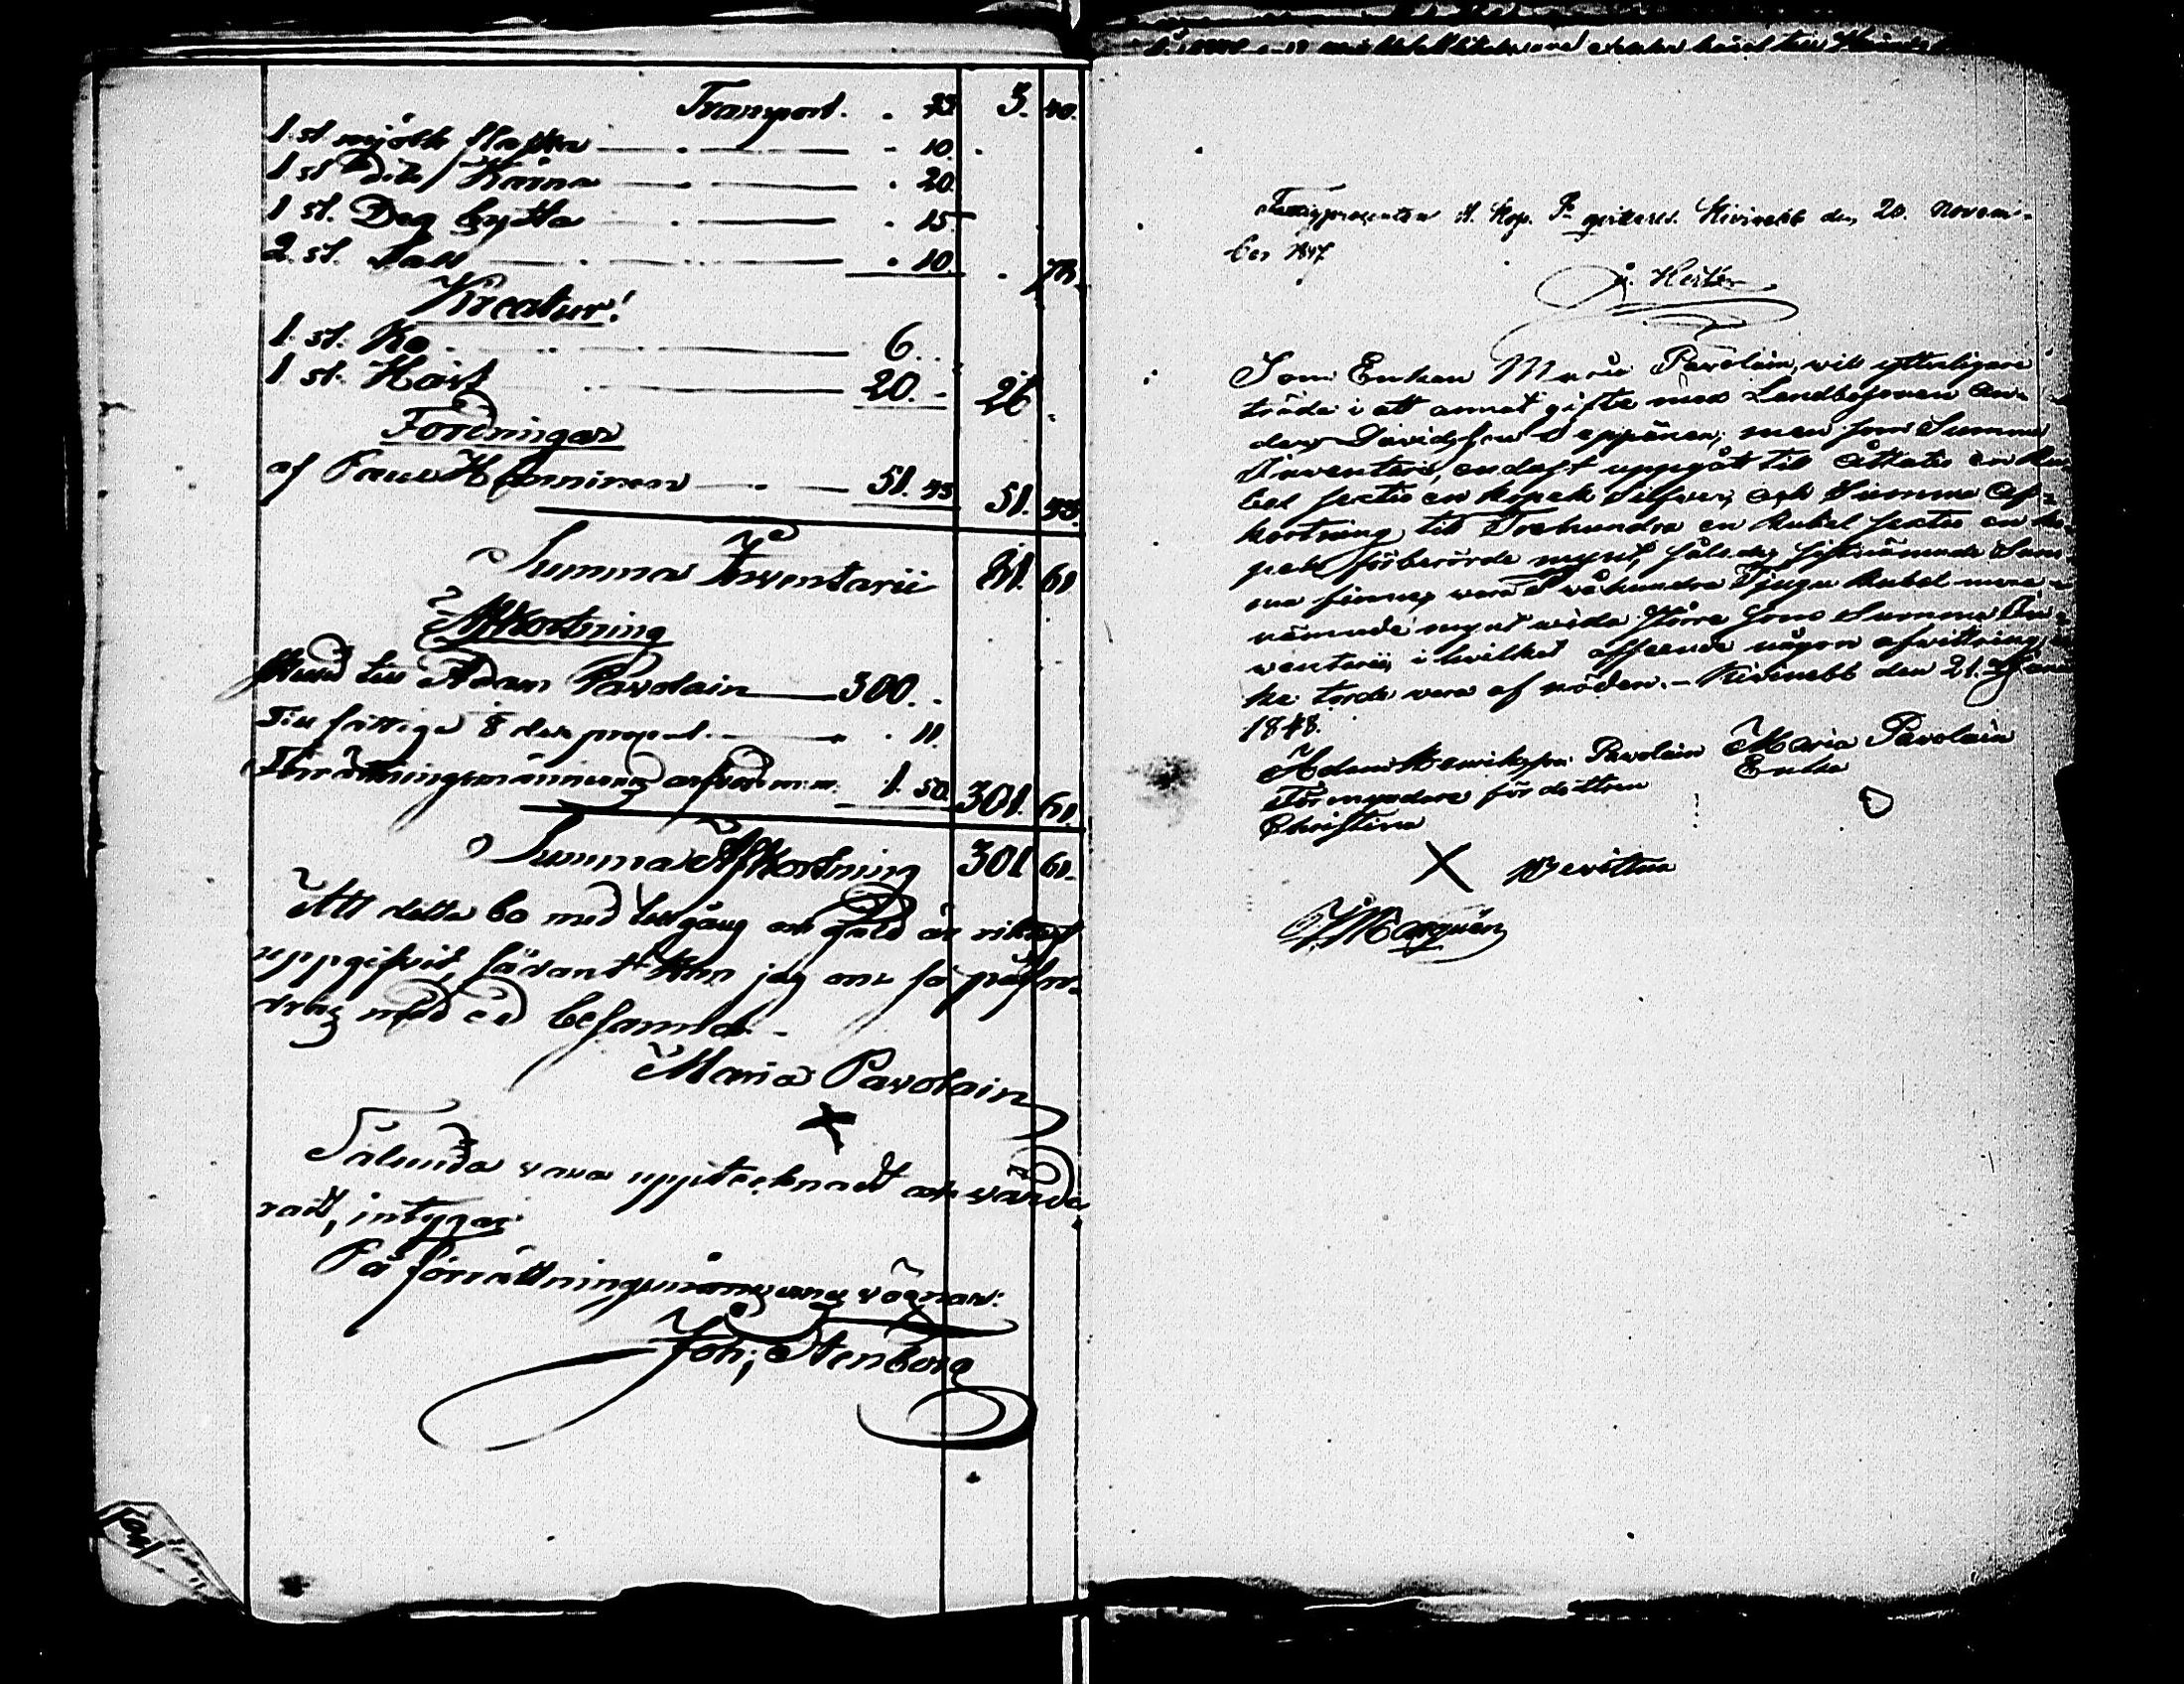 Transport. . 23 3. 40.
1. st mjölk flaska - 10.
1 st Dito Kärna . 20.
1 st. Deg bytta . 15
2. st. . 10. . 78.
Kreatur!
1. st. Ko 6 . .
1 st. Häst 20. - 26 .
Fordningar
af Paul Homminen 51. 43 51. 43.
Summa Inventarii 81. 61
Afkortning
Skuld till Adam Pavolain 300. .
Till fattige 8 dels procent . 11.
Förrättningsmännernes arfvod m.m. 1. 50. 301. 61.
Summa Afkortning 301 61.
Att detta bo med tillgång och gäld är riktigt
uppgifvit, sådant kan jag om så påford-
dras med ed besanna.-
Maria Pavolain
X
Sålunda vara upptecknadt och värde-
radt, intygar
På förrättningsmännernes vägnar:
Joh; Stenborg
Fattigprocenten 11. Kop. Sr qvitteres. Kivinebb den 20. Novem-
ber 1847
Som Enkan Maria Pavolain, vill ytterligare
träda i ett annat gifte med Landbosonen An-
ders Davidsson Seppänen; men som Summa
Inventarii, endast uppgåt till Åttatio en Ru-
bel sextio en kopek Silfver, och Summa Af-
kortning till Trehundra en Rubel sextio en ko-
pek förberörde mynt, således sistnämnde Sum-
ma finnes vara Tvåhundra Tjugu Rubel
nämnde mynt större som Summa In-
ventarii, i hvilket afseende någon afvittring
ke torde vara af nöden. - Kivinebb den 21.
1848.
Adam Henriksson Pavolain Maria Pavolain
Förmyndare för dottren Enka
Christina
X Bevittna